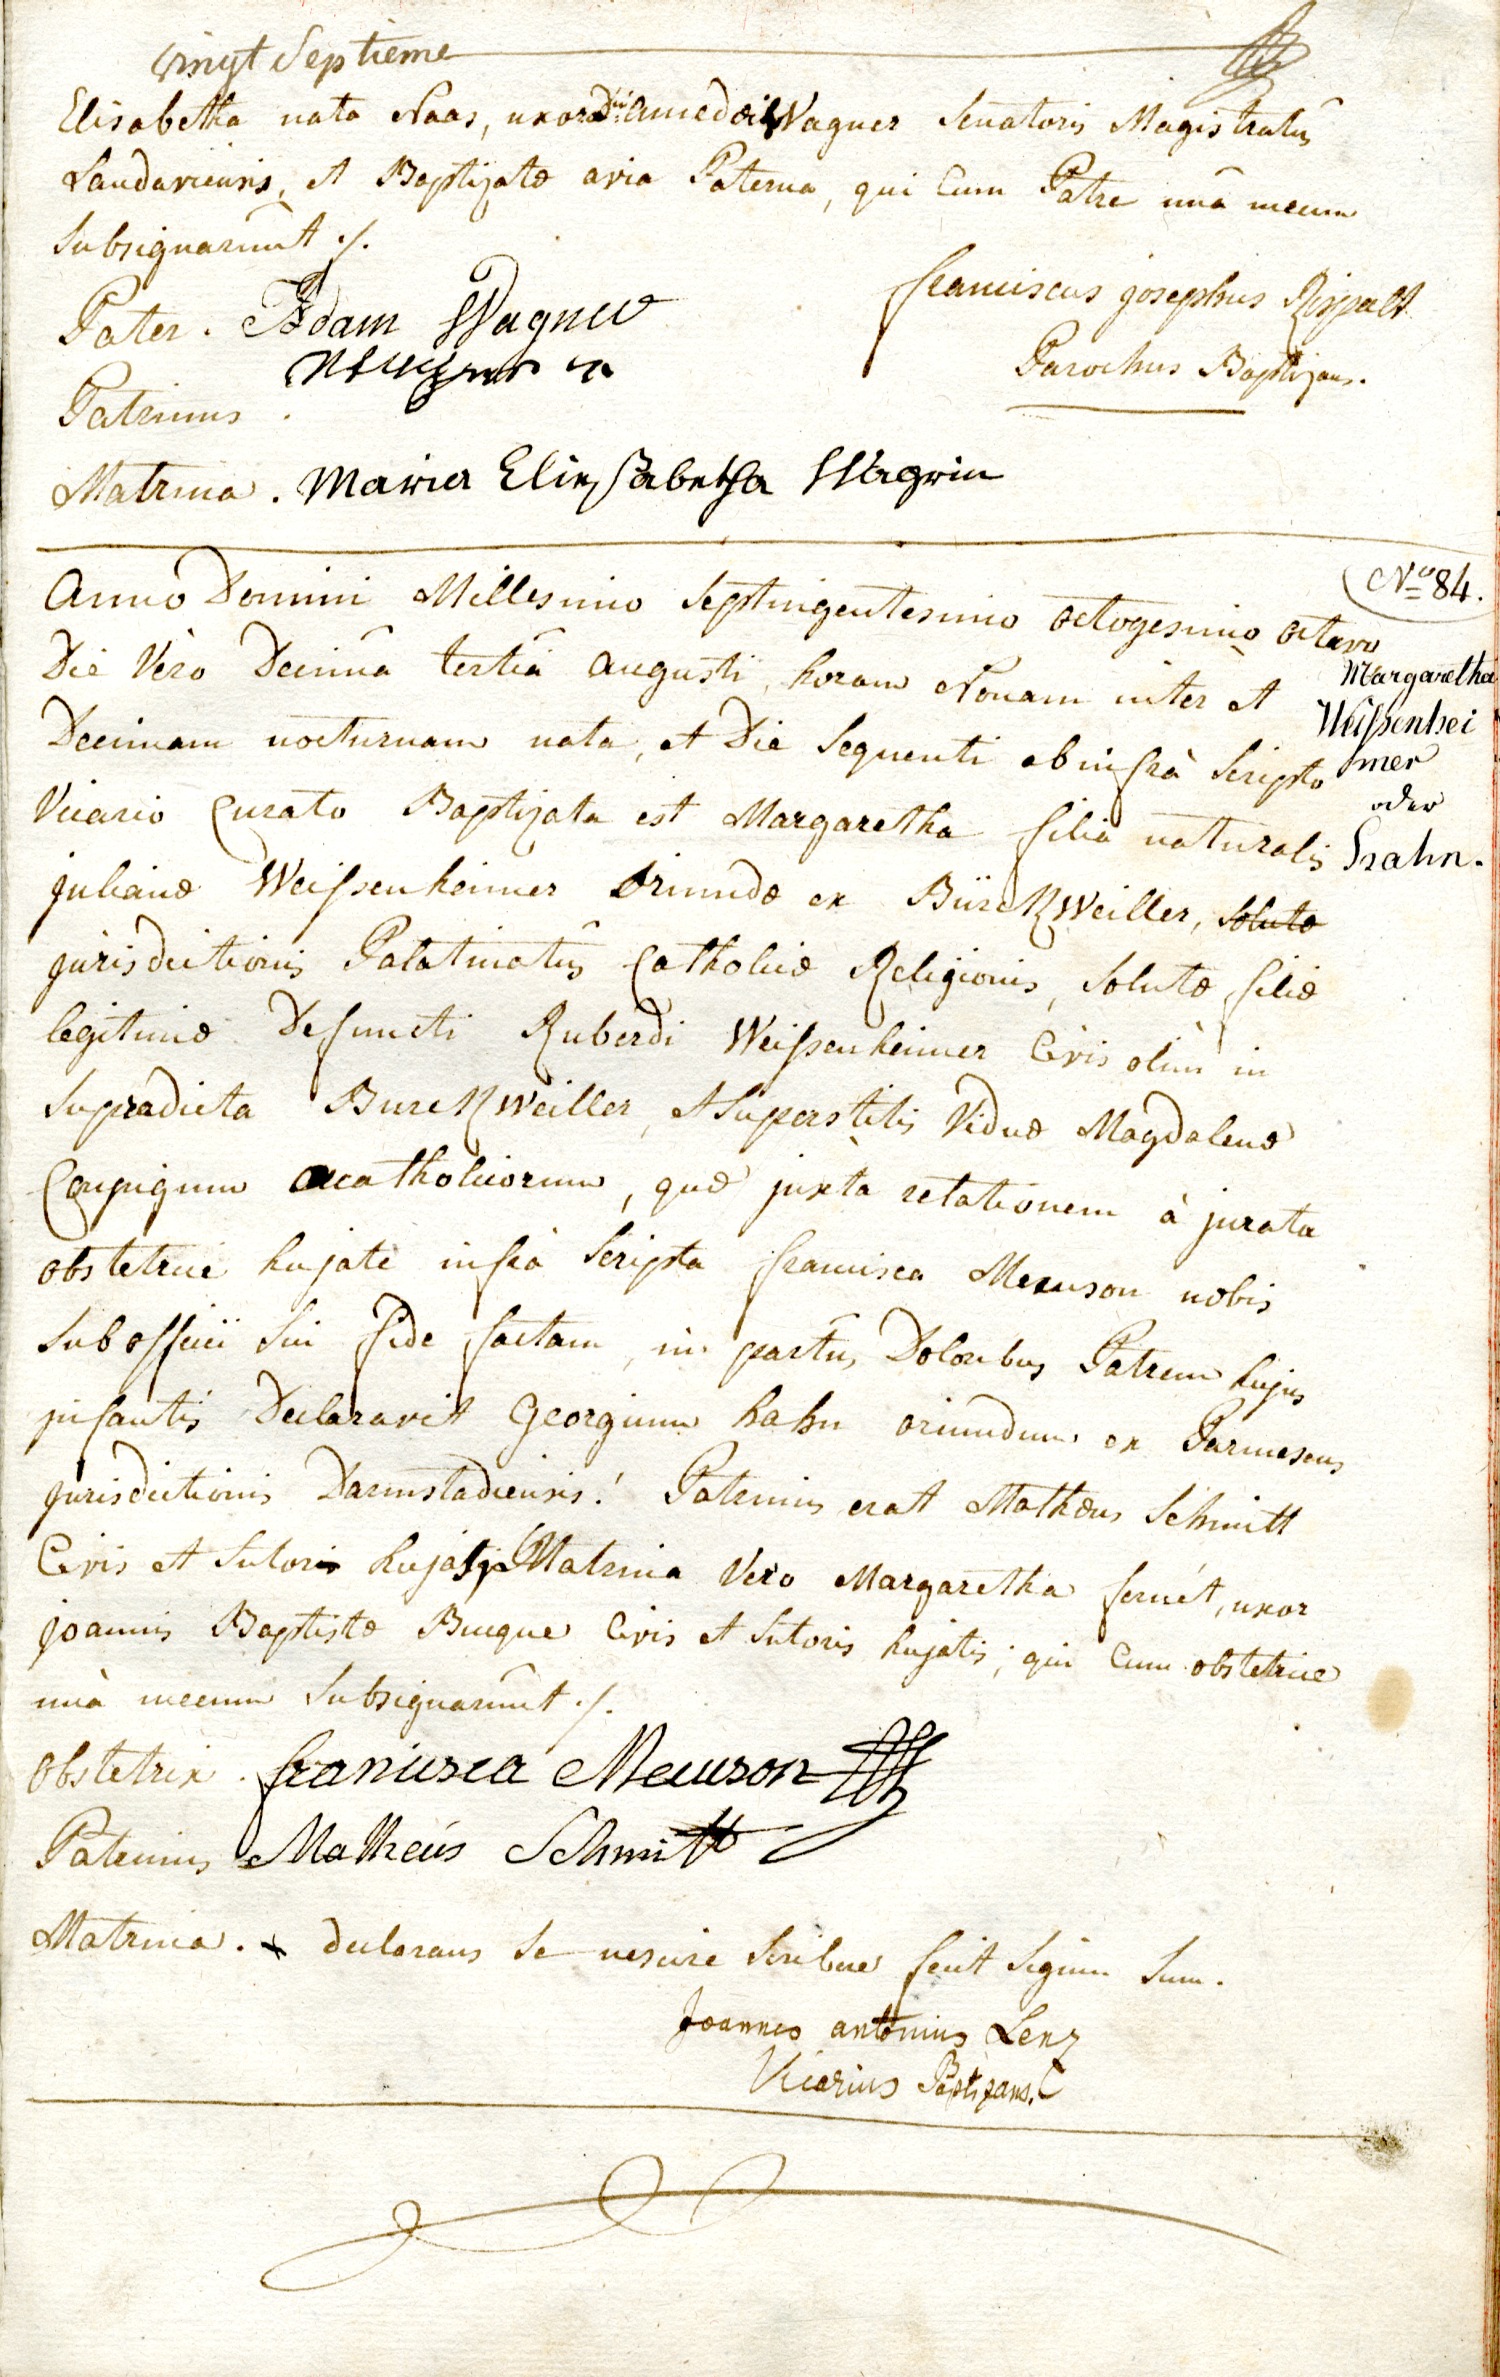 vingt Septieme
Elisabetha nata Naas, uxor Dni: amedæi Wagner Senatoris Magistratûs
Landaviensis, et Baptizatæ avia Paterna, qui Cum Patre unâ mecum
Subsignarunt ./.
Pater . Adam Wagner
franciscus josephus
Parochus Baptizans.
Patrinus .
Matrina . Maria Eliesabetha Wagrin
No 84.
Anno Domini Millesimo Septingentesimo octogesimo octavo
Die Vèro Decimâ tertiâ augusti, horam Nonam inter et
Decimam nocturnam nata, et Die Sequenti ab infrà Scripto
Vicario Curato Baptizata est Margaretha filia naturalis
julianæ Weissenheimer oriundæ ex BürcKWeiller, Solutæ
jurisdictionis Palatinatûs Catholicæ Religionis, Solutæ filiæ
legitimæ Defuncti Ruberdi Weissenheimer Civis olim in
Supradicta BurcKweiller, et Superstitis Viduæ Magdalenæ
Conjugum acatholicorum, quæ juxtà relationem à jurata
obstetrice hujate infrà Scripta francisca Meauson nobis
Sub officii Sui fide factam, in partûs Doloribus Patrem hujus
infantis Declaravit Georgium hahn oriundum ex Parmesens
jurisdictionis Darmstadiensis! Patrinus erat Mathæus Schmitt
Civis et Sutor hujas, Matrina Vero Margaretha fernét, uxor
joannis Baptistæ Buque Civis et Sutoris hujatis; qui Cum obstetrice
unà mecum Subsignarunt ./.
Margaretha
Weissenhei
mer
oder
Hahn.
Obstetrix . francisca Meauson
Patrinus Matheus Schmitt
Matrina . x declarans Se nescire Scribere fecit Signum Suum.
Joannes antonius Lenz
Vicarius Baptizans.